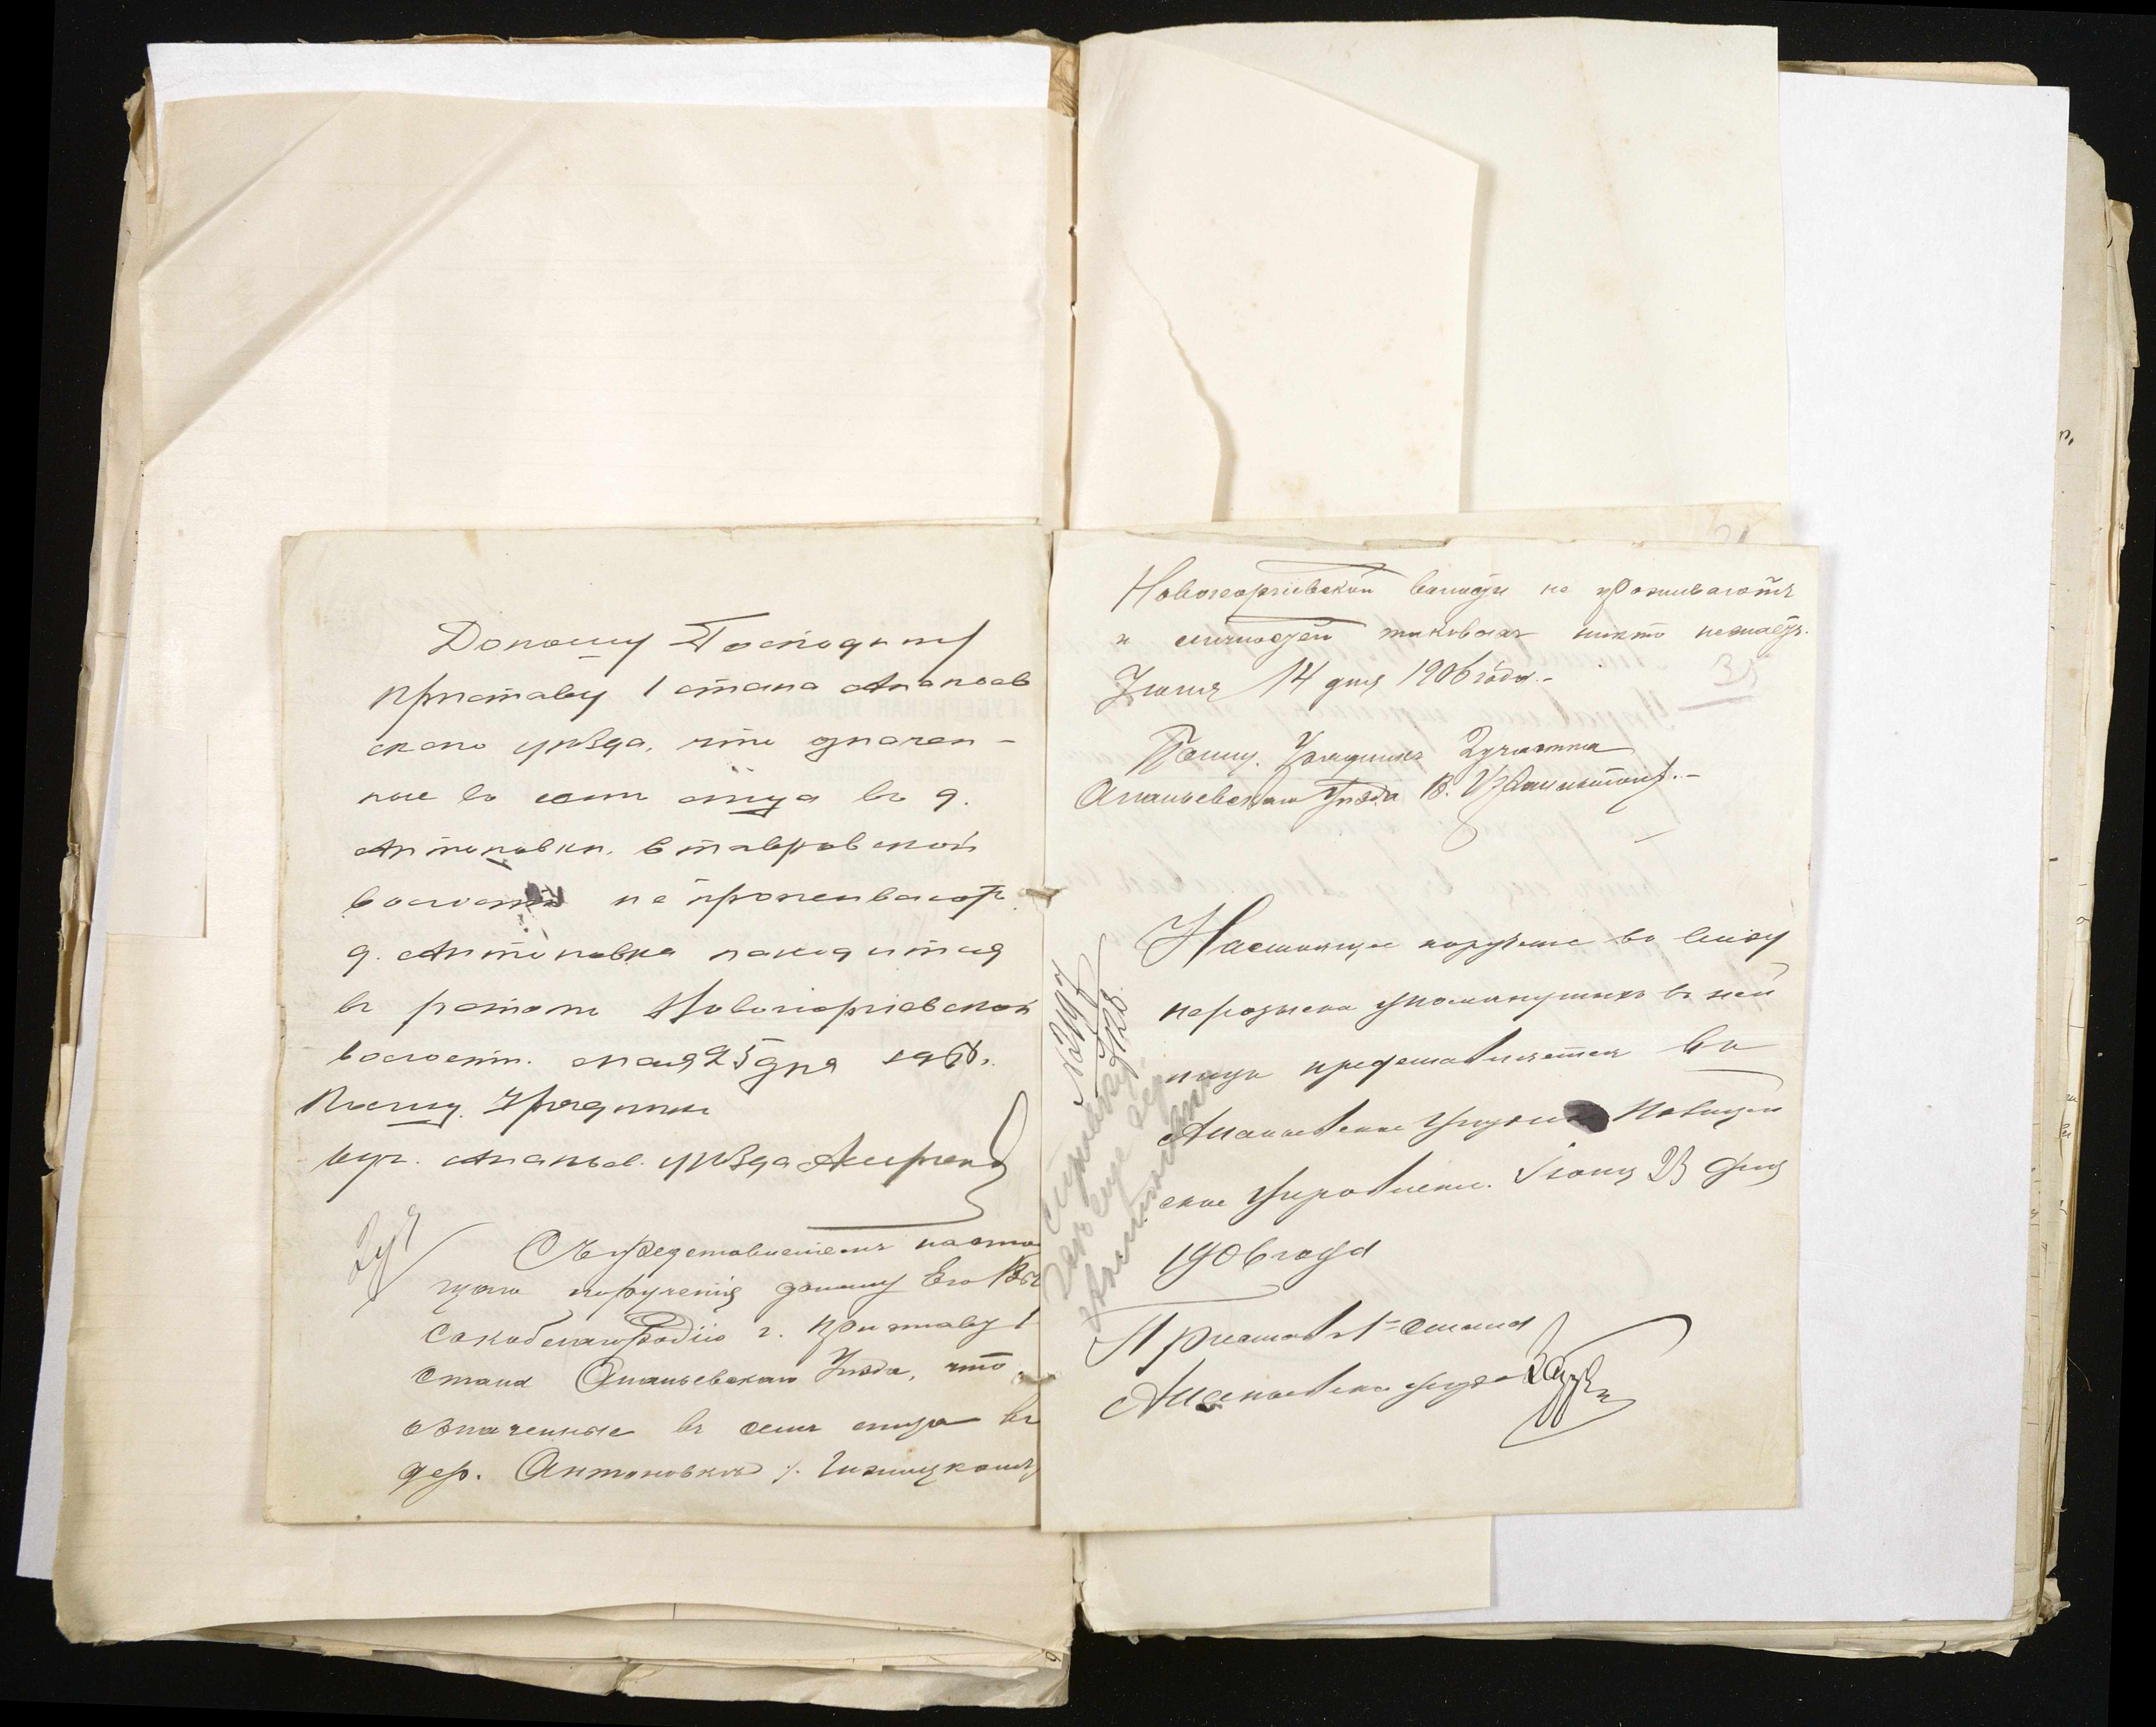 Доношу Господину
приставу 1 стана Ананьев
скаго уѣзда, что означен-
ные въ семъ лица въ д.
Антоновки, Ставровской
волости не проживаютъ
д. Антоновка находится
въ раіонѣ Новогеоргіевской
волости. Мая 25 дня 190
Полиц. Урядникъ
уч. Ананьев. уѣзда
2 уч
Съ представленіемъ настоя
щаго порученія доношу Его Вы
сокоблагородію г. Приставу 1
стана Ананьевскаго Уѣзда, что
означенные въ семъ лица въ
дер. Антоновкѣ
Новогеоргіевской волости не проживаютъ
и личностей таковыхъ никто незнаетъ.
Іюня 14 дня 1906 года.-
Полиц. Урядникъ 2 участка
Ананьевскаго Уѣзда В.
35
Настоящее порученіе въ виду
нерозыска упомянутыхъ въ ней
лицъ представляется въ
Ананьевское Уѣздное Полицей
ское Управленіе. Іюня 23 дня
1906 года
Приставъ 1 стана
Ананьевскаго уѣзда
№ 2197